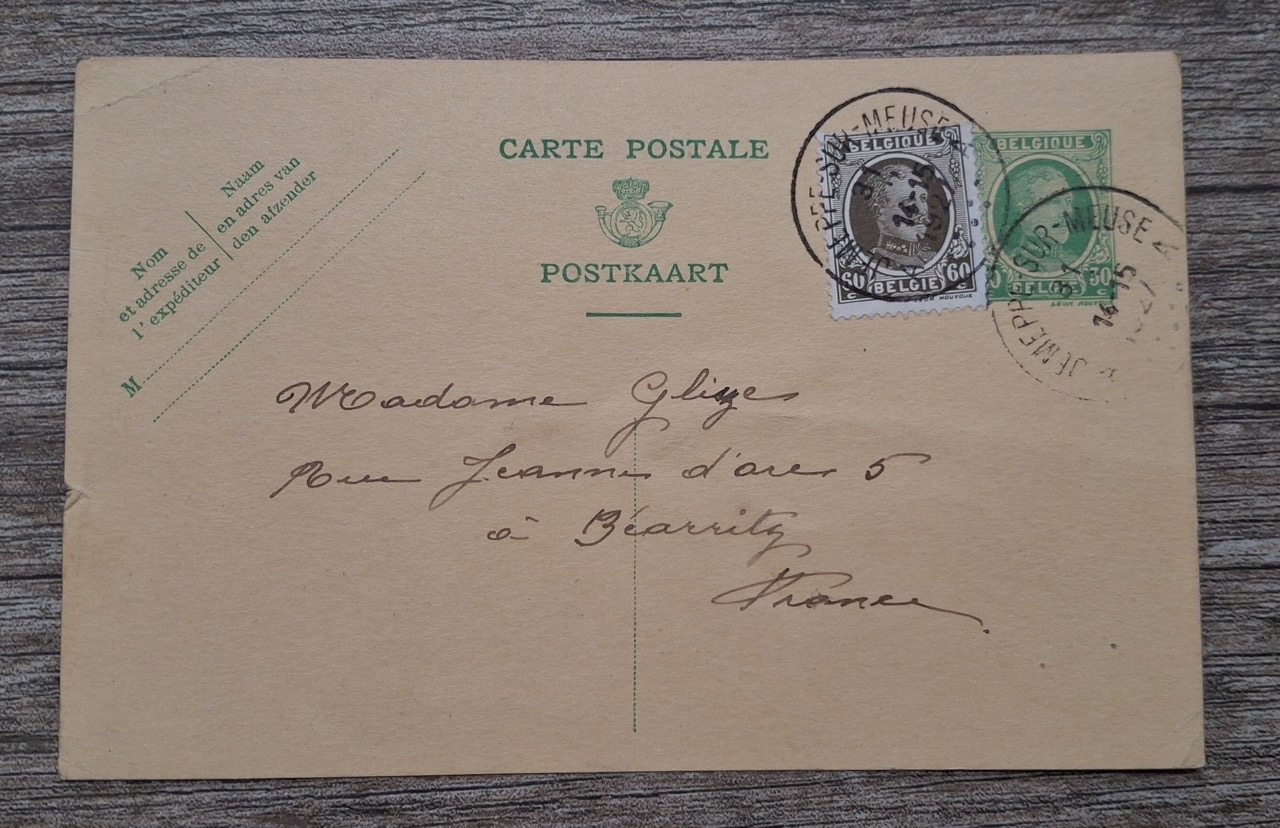 CARTE POSTALE
POSTKAART
Nom
et adresse de
l'expéditeur
Naam
en adres van
den afzender
M
BELGIQUE
60 60
c c
BELGIË
BELGIQUE
30
c
BELGIË
JEMEPPE-SUR-MEUSE
A
31
14-15
1927
JEMEPPE-SUR-MEUSE
A
31
14-15
1927
Madame Glizes
Rue Jeanne d'arc 5
à Béarritz
France.